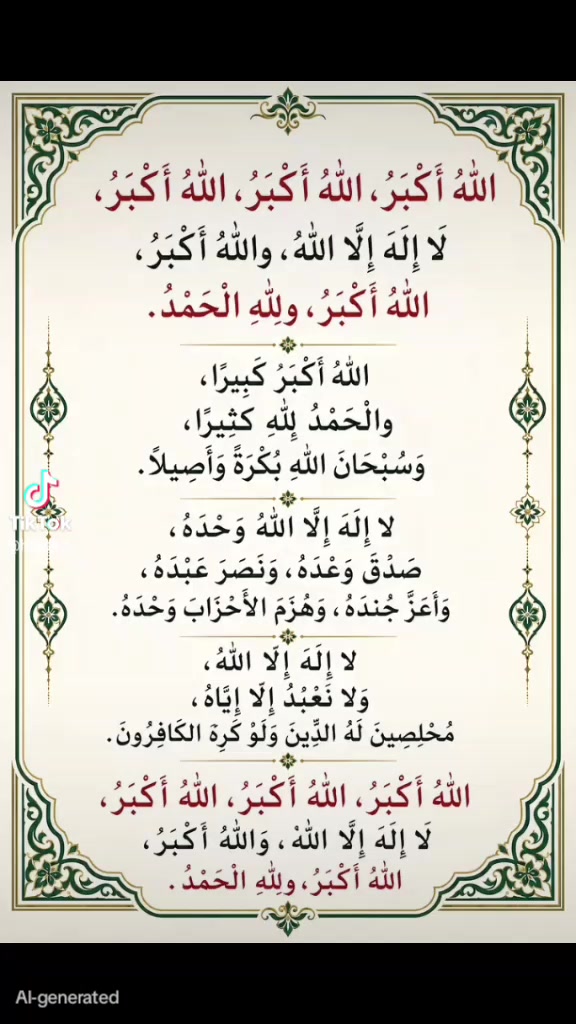 اللهُ أَكْبَرُ، اللهُ أَكْبَرُ، اللهُ أَكْبَرُ،
لَا إِلَهَ إِلَّا اللهُ، واللهُ أَكْبَرُ،
اللهُ أَكْبَرُ، ولِلهِ الْحَمْدُ.
اللهُ أَكْبَرُ كَبِيرًا،
والْحَمْدُ لِلهِ كثِيرًا،
وَسُبْحَانَ اللهِ بُكْرَةً وَأَصِيلاً.
لا إِلَهَ إِلَّا اللهُ وَحْدَهُ،
صَدْقَ وَعْدَهُ، وَنَصَرَ عَبْدَهُ،
وَأَعَزَّ جُندَهُ، وَهُزَمَ الأَحْزَابَ وَحْدَهُ.
لا إِلَهَ إِلّا اللهُ،
وَلا نَعْبُدُ إِلّا إِيَّاهُ،
مُخْلِصِينَ لَهُ الدِّينَ وَلَوْ كَرِهَ الكَافِرُونَ.
اللهُ أَكْبَرُ، اللهُ أَكْبَرُ، اللهُ أَكْبَرُ،
لَا إِلَهَ إِلَّا اللهْ، وَاللهُ أَكْبَرُ،
اللهُ أَكْبَرُ، ولِلهِ الْحَمْدُ.
TikTok
AI-generated